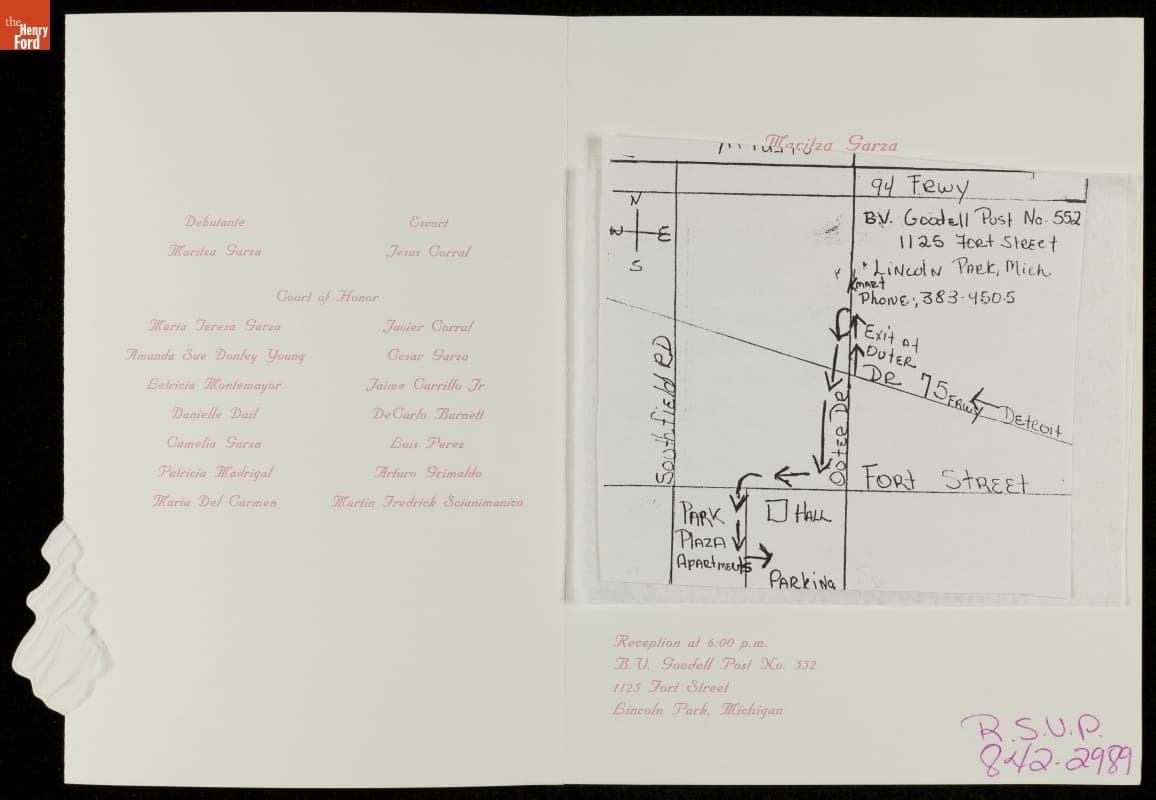 the
Henry
Ford
Debutante Escort
Maritza Garza Jesus Corral
Court of Honor
Maria Teresa Garza Javier Corral
Amanda Sue Donley Young Cesar Garza
Letricia Montemayor Jaime Carrillo Jr.
Danielle Dail DeCarlo Barnett
Camelia Garza Luis Perez
Patricia Madrigal Arturo Grimaldo
Maria Del Carmen Martin Fredrick Scianimanico
Maritza Garza
94 Frwy
N
W E
S
B.V. Goodell Post No. 552
1125 Fort Street
Lincoln Park, Mich
Kmart
Phone; 383-4505
Exit at
Outer
DR
75 Frwy
Detroit
Southfield RD
Outer Dr
Fort Street
Park
Plaza
Apartments
Hall
Parking
Reception at 6:00 p.m.
B.V. Goodell Post No. 552
1125 Fort Street
Lincoln Park, Michigan
R.S.V.P.
842-2989